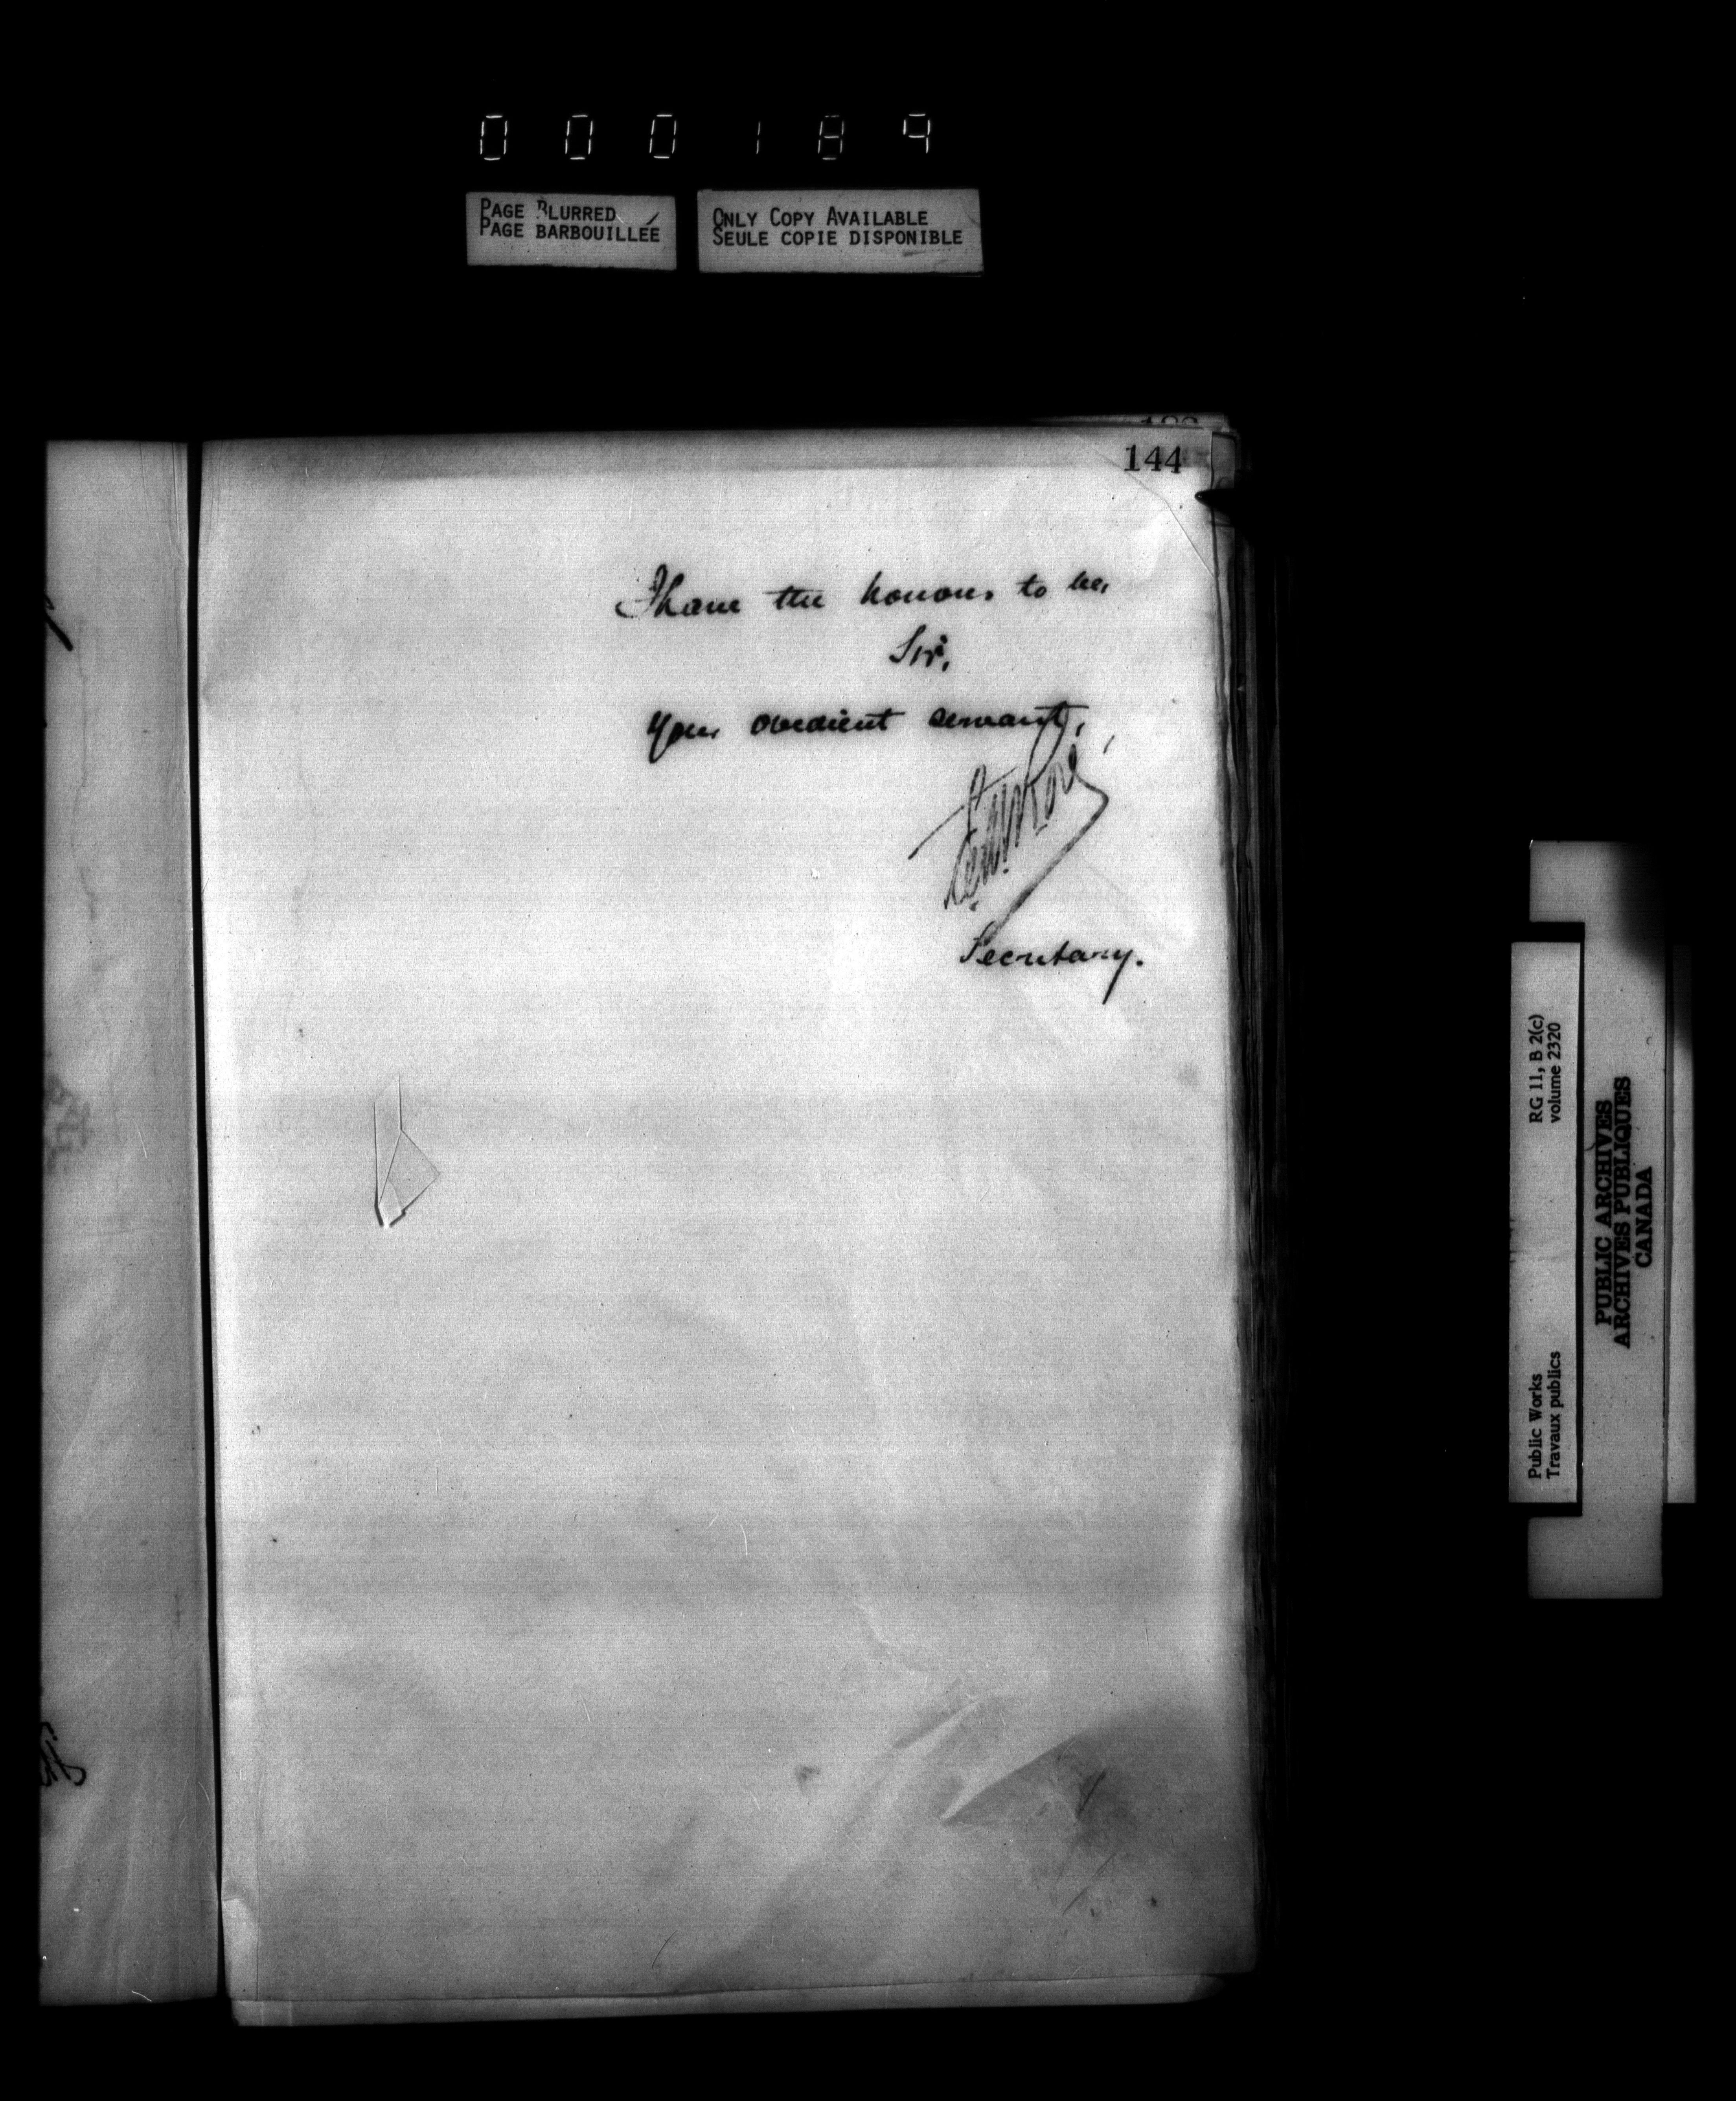 000189
PAGE BLURRED
PAGE BARBOUILLÉE
ONLY COPY AVAILABLE
SEULE COPIE DISPONIBLE
144
I have the honour to be,
Sir,
Your obedient servant,
Secretary.
Public Works
Travaux publics
RG 11, B 2(c)
volume 2320
PUBLIC ARCHIVES
ARCHIVES PUBLIQUES
CANADA